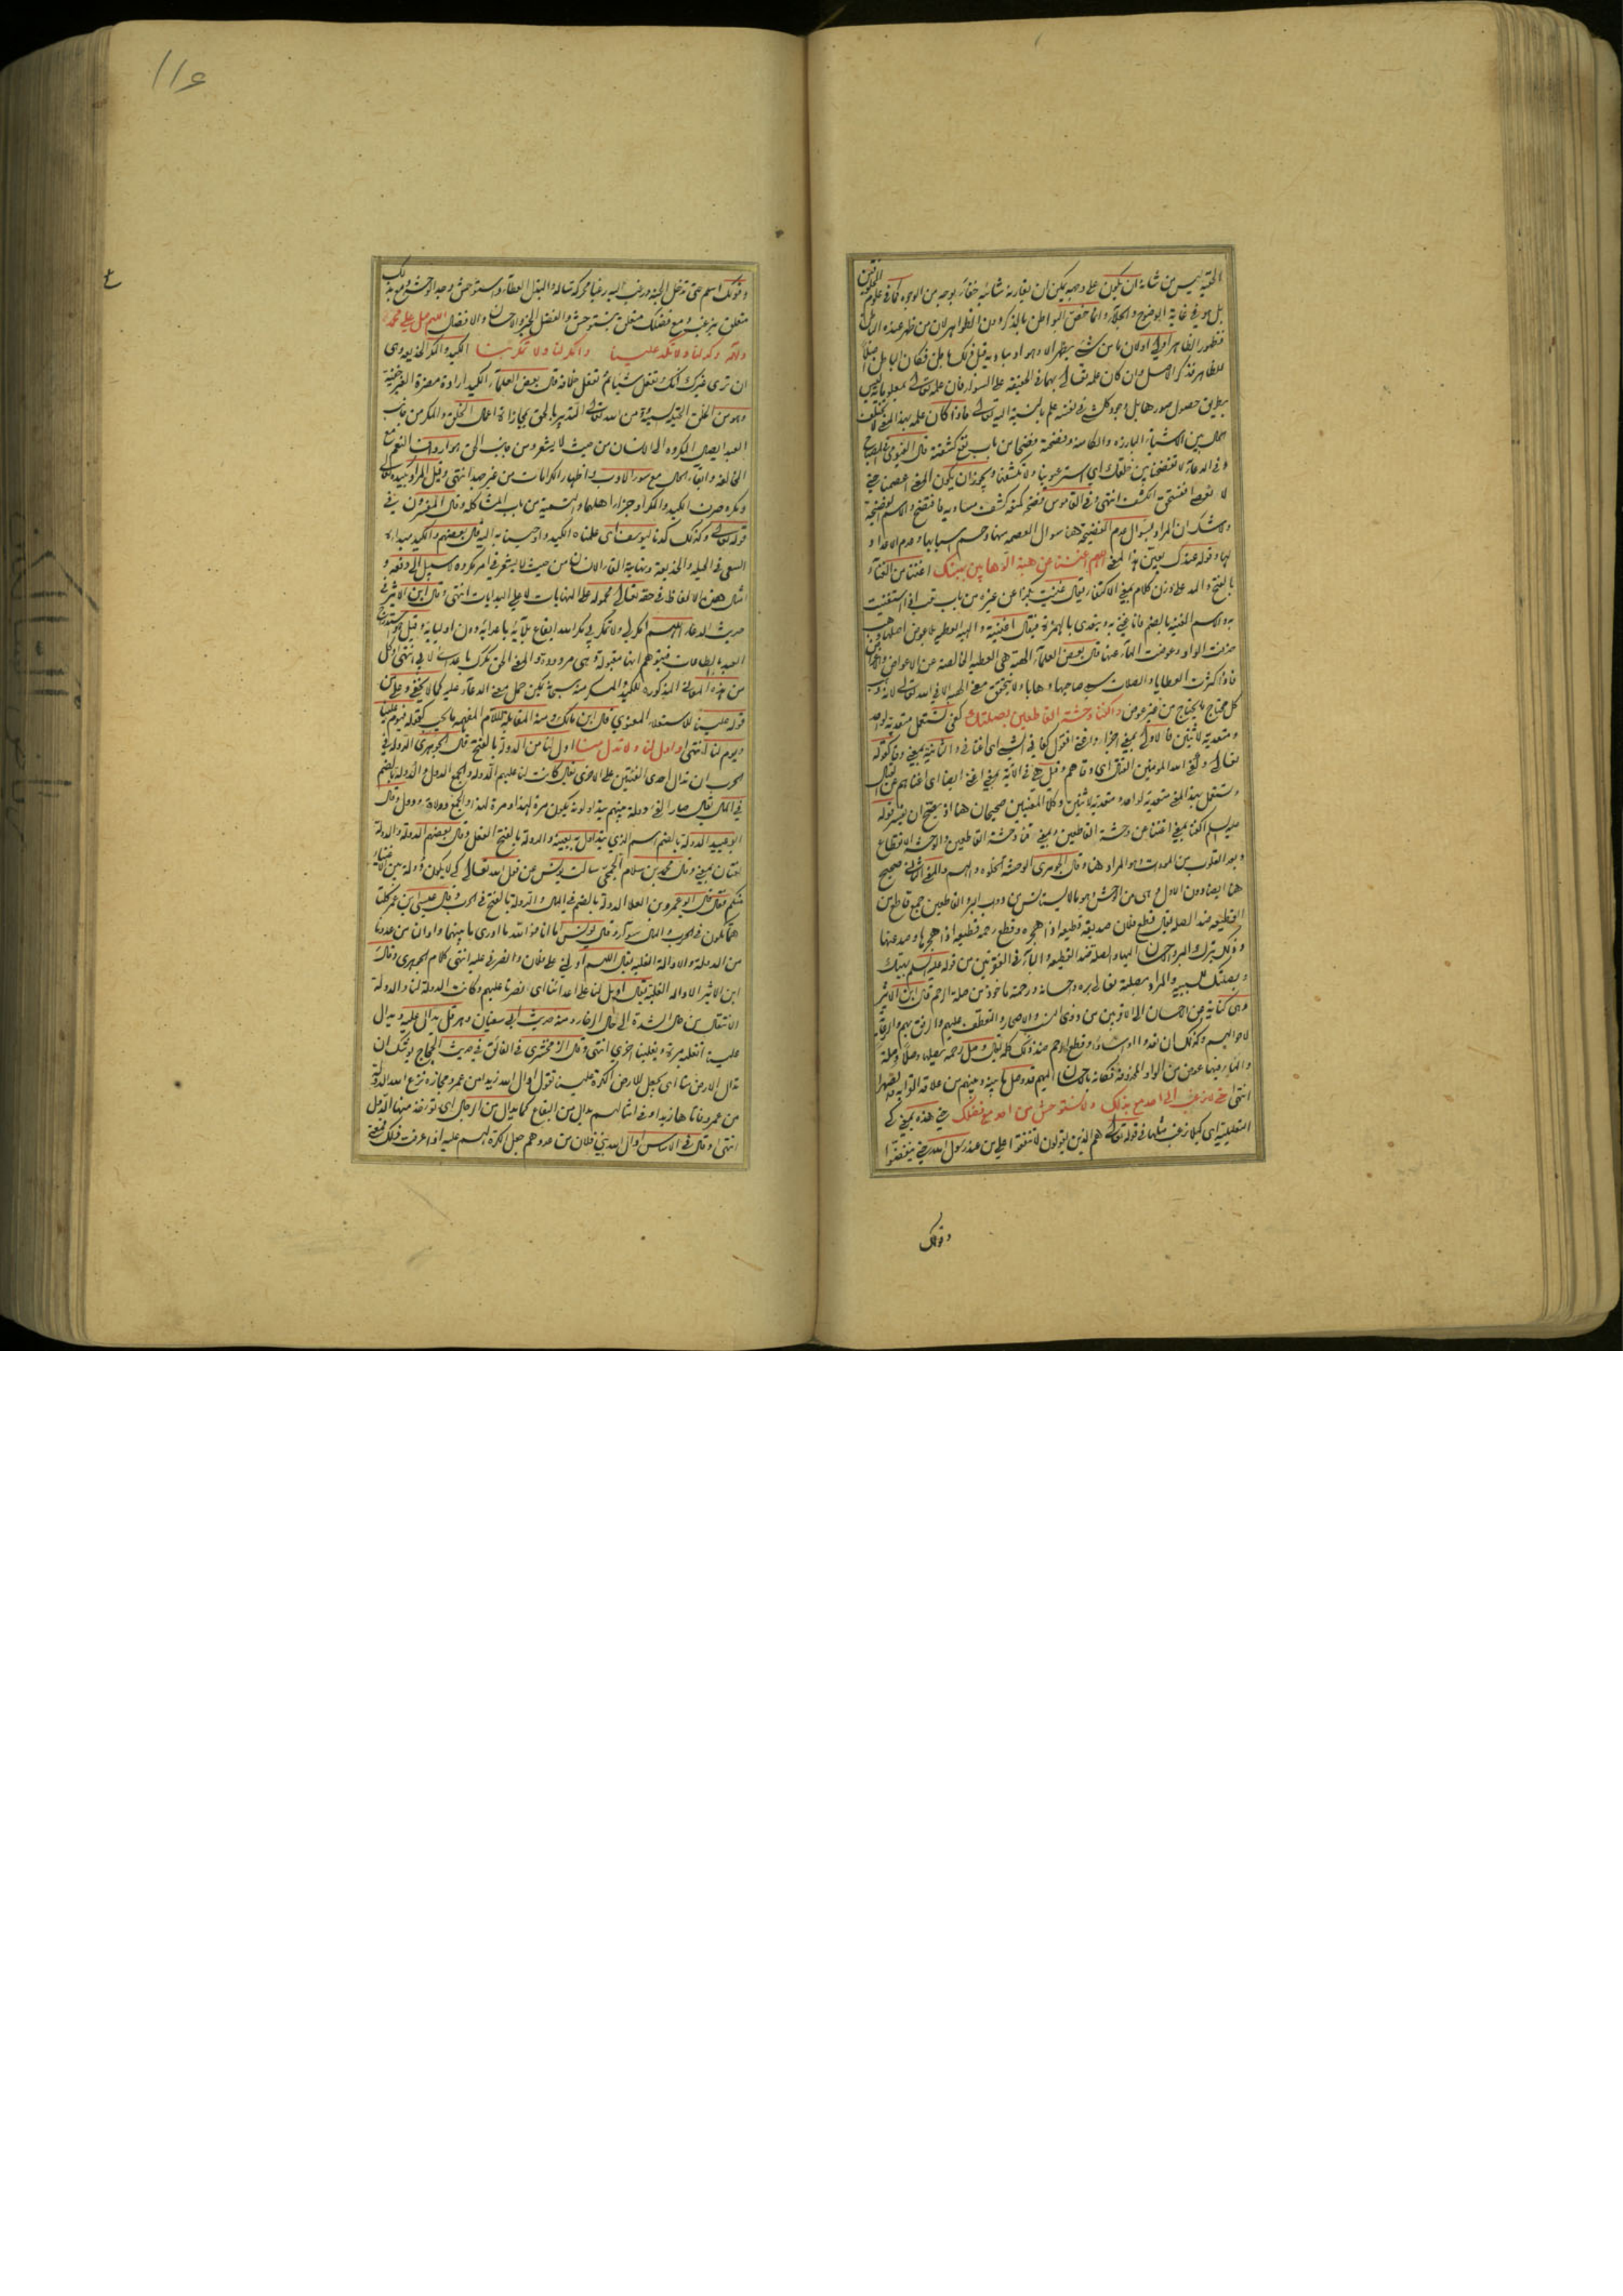 الحقية ليس من شانه ان يكون على وجه يمكن ان يقارنه شائبة خفاء بوجه من الوجوه كما في علوم المخلوقين
بل هو في غاية الوضوح والجلاء وانما خص البواطن بالذكر دون الظواهر لان من ظهر عنده الباطن
فظهور الظاهر اولى
للظاهر فذكر الاصل وان كان علمه تعالى بهما في الحقيقة على السواء فان علمه تعالى بمعلوماته ليس
بطريق حصول صورها بل وجود كل شيء في نفسه علم بالنسبة اليه تعالى
الحال بين الاشياء البارزة والكامنة وفضحه فضحا من باب نفع كشفته قال الفيومي في المصباح
وفي الدعاء لا تفضحنا بين خلقك اي استر عيوبنا ولا تكشفها ويجوز ان يكون المعنى اعصمنا حتى
لا نعصي فنستحق الكشف انتهى وفي القاموس فضحه كمنعه كشف مساويه فافتضح والاسم الفضيحة
ولا شك ان المراد بسؤال عدم الفضيحة هنا سؤال العصمة منها وحسم اسبابها
لها وقوله عندك يعين هذا المعنى اللهم اغننا عن هبة الوهابين بهبتك اغننا من الغناء
بالفتح والمد على وزن كلام بمعنى الاكتفاء يقال غنيت بكذا عن غيره من باب تعب اذا استغنيت
به والاسم الغنية بالضم فانا غني به ويتعدى بالهمزة فيقال اغنيته والهبة العطية بلا عوض اصلها وهب
حذفت الواو وعوضت الهاء عنها قال بعض العلماء الهبة هي العطية الخالصة عن الاعواض والاغراض
فاذا كثرت العطايا والصلات سمي صاحبها وهابا ولا يتحقق معنى الهبة الا في الله تعالى لانه وهب
كل محتاج ما يحتاج من غير عوض واكفنا وحشة القاطعين بصلتك كفى تستعمل متعدية لواحد
ومتعدية لاثنين فالاولى بمعنى اجزأ واغنى تقول كفاني الشيء اي اغناني والثانية بمعنى وقى كقوله
تعالى وكفى الله المؤمنين القتال اي وقاهم وقيل هي في الاية بمعنى اغنى ايضا اي اغناهم عن القتال
وتستعمل بهذا المعنى متعدية لواحد ومتعدية لاثنين وكلا المعنيين صحيحان هنا اذ يصح ان يفسر قوله
عليه السلام اكفنا بمعنى اغننا عن وحشة القاطعين وبمعنى قنا وحشة القاطعين والوحشة الانقطاع
وبعد القلوب عن المودات وهو المراد هنا وقال الجوهري الوحشة الخلوة والهم والمعنى الثاني صحيح
هنا ايضا دون الاول وهي من الوحش وهو ما لا يستانس من دواب البر والقاطعين جمع قاطع من
القطيعة ضد الصلة يقال قطع فلان صديقه قطيعة اذا هجره وقطع رحمه قطيعة اذا هجرها وصد عنها
وذلك بترك البر والاحسان اليها والصلة ضد القطيعة والباء في الفقرتين من قوله عليه السلام بهبتك
وبصلتك للسببية والمراد بصلته تعالى بره واحسانه ورحمته ماخوذ من صلة الرحم قال ابن الاثير
وهي كناية عن الاحسان الى الاقربين من ذوي النسب والاصهار والتعطف عليهم والرفق بهم والرعاية
لاحوالهم وكذلك ان بعدوا او اساؤا وقطع الرحم ضد ذلك كله يقال وصل رحمه يصلها وصلا وصلة
والهاء فيها عوض من الواو المحذوفة فكانه بالاحسان اليهم قد وصل ما بينه وبينهم من علاقة القرابة والصهر
انتهى حتى لا نرغب الى احد مع بذلك ولا نستوحش من احد مع فضلك حتى هذه بمعنى كي
التعليلية اي كيلا نرغب مثلها في قوله تعالى هم الذين يقولون لا تنفقوا على من عند رسول الله حتى ينفضوا
وقولك
١١٦
وقولك اسلم حتى تدخل الجنة ورغب اليه رغبا محركة ساله والبذل العطاء واستوحش وجد الوحشة ومع بذلك
متعلق بنرغب ومع فضلك متعلق بنستوحش والفضل الخير والاحسان والافضال اللهم صل على محمد
وآله وكد لنا ولا تكد علينا وامكر لنا ولا تمكر بنا الكيد والمكر الخديعة وهي
ان تري غيرك انك تفعل شيئا ثم تفعل خلافه قال بعض العلماء الكيد ارادة مضرة الغير خفية
وهو من الخلق الحيلة السيئة ومن الله تعالى التدبير بالحق لمجازاة اعمال الخلق والمكر من جانب
العبد ايصال المكروه الى الانسان من حيث لا يشعر ومن جانب الحق هو ارداف النعم مع
المخالفة وابقاء الحال مع سوء الادب واظهار الكرامات من غير جهد انتهى وقيل المراد بكيده تعالى
ومكره ضرب الكيد والمكر او جزاء اهلهما والتسمية من باب المشاكلة وقال المفسرون في
قوله تعالى وكذلك كدنا ليوسف اي علمناه الكيد واوحينا به اليه وقال بعضهم والكيد مبداه
السعي في الحيلة والخديعة ونهايته القاء الانسان من حيث لا يشعر في امر مكروه لا سبيل الى دفعه و
امثال هذه الالفاظ في حقه تعالى محمولة على النهايات لا على البدايات انتهى وقال ابن الاثير في
حديث الدعاء اللهم امكر لي ولا تمكر بي مكر الله ايقاع بلائه باعدائه دون اوليائه وقيل هو استدراج
العبد بالطاعات فيتوهم انها مقبولة وهي مردودة والمعنى الحق مكرك باعدائي لا بي انتهى وكل
من هذه المعاني المذكورة للكيد والمكر منه سبحانه يمكن حمل معنى الدعاء عليه كما لا يخفى وعلى في
قوله علينا للاستعلاء المعنوي قال ابن مالك ومنه المقابلة للام المفهمة ما يحب كقوله فيوم علينا
ويوم لنا انتهى وادل لنا ولا تدل منا ادل لنا من الدولة بالفتح قال الجوهري الدولة في
الحرب ان تدال احدى الفئتين على الاخرى يقال كانت لنا عليهم الدولة والجمع الدول والدولة بالضم
في المال يقال صار الفيء دولة بينهم يتداولونه يكون مرة لهذا ومرة لهذا والجمع دولات ودول وقال
ابو عبيد الدولة بالضم اسم الذي يتداول به بعينه والدولة بالفتح الفعل وقال بعضهم الدولة والدولة
لغتان بمعنى وقال محمد بن سلام الجمحي سالت يونس عن قول الله تعالى كي لا يكون دولة بين الاغنياء
منكم فقال قال ابو عمرو بن العلا الدولة بالضم في المال والدولة بالفتح في الحرب وقال عيسى ابن عمر كلتا
هما تكون في الحرب والمال سواء وقال يونس اما انا فوالله ما ادري ما بينهما وادالنا من عدونا
من الدولة والادالة الغلبة يقال اللهم ادلني على فلان وانصرني عليه انتهى كلام الجوهري وقال
ابن الاثير الادالة الغلبة يقال اديل لنا على اعدائنا اي نصرنا عليهم وكانت الدولة لنا والدولة
الانتقال من حال الشدة الى حال الرخاء ومنه حديث ابي سفيان وهرقل يدال عليه ويدال
علينا اي نغلبه مرة ويغلبنا اخرى انتهى وقال الزمخشري في الفائق في حديث الحجاج يوشك ان
تدال الارض منا اي تجعل للارض الكرة علينا تقول ادال الله زيدا من عمرو مجازه نزع الله الدولة
من عمرو فاتاها زيدا وفي امثالهم يدال من البقاع كما يدال من الرجال اي توخذ منها الدول
انتهى وقال في الاساس ادال الله بني فلان من عدوهم جعل الكرة لهم عليه اذا عرفت ذلك فمعنى